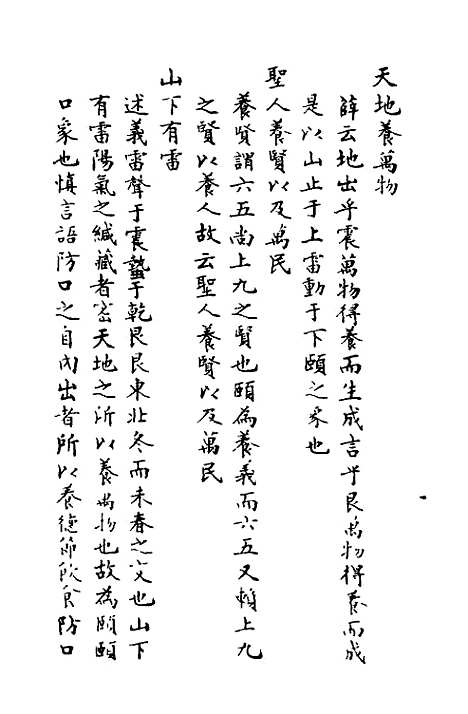 天地養萬物
薛云地出乎震萬物得養而生成言乎艮萬物得養而成
是以山止于上雷動于下頤之象也
聖人養賢以及萬民
養賢謂六五尚上九之賢也頤為養義而六五又賴上九
之賢以養人故云聖人養賢以及萬民
山下有雷
述義雷聲于震蟄于乾艮艮東北冬而未春之交也山下
有雷陽氣之緘藏者密天地之所以養萬物也故為頤頤
口象也慎言語防口之自內出者所以養德節飲食防口